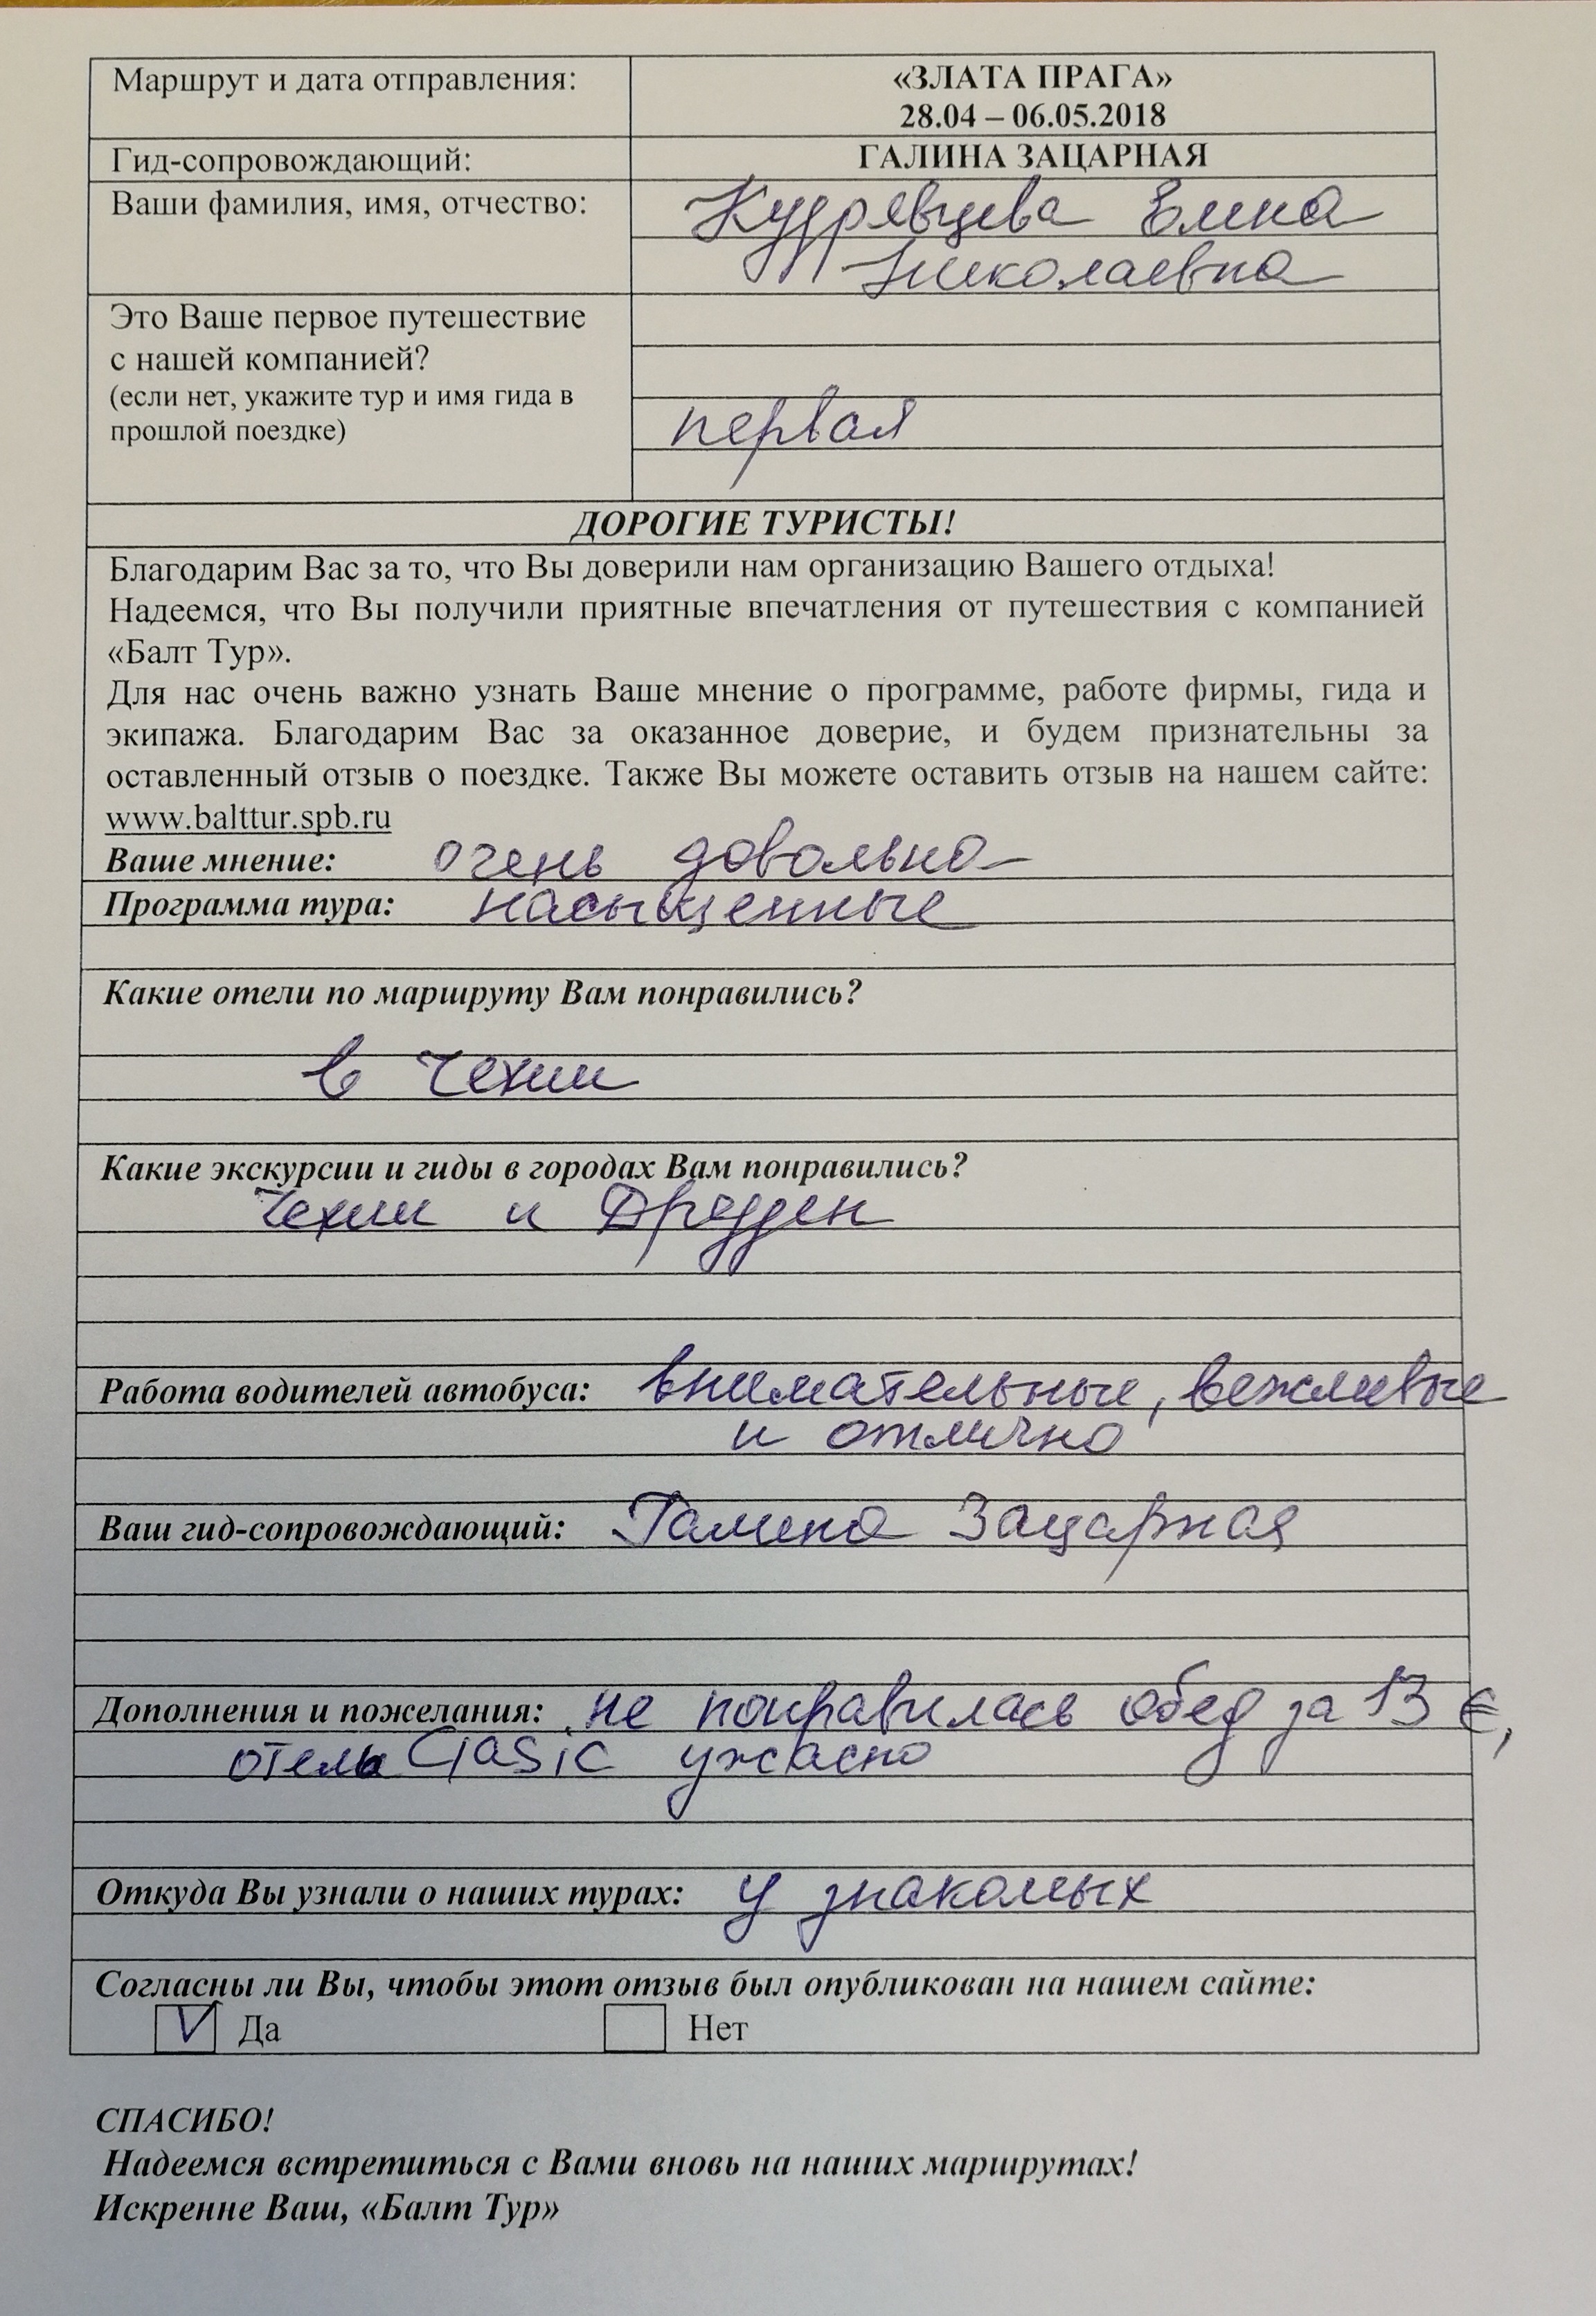 Маршрут и дата отправления:
«ЗЛАТА ПРАГА»
28.04 – 06.05.2018
Гид-сопровождающий:
ГАЛИНА ЗАЦАРНАЯ
Ваши фамилия, имя, отчество:
Кудрявцева Елена
Николаевна
Это Ваше первое путешествие
с нашей компанией?
(если нет, укажите тур и имя гида в
прошлой поездке)
первая
ДОРОГИЕ ТУРИСТЫ!
Благодарим Вас за то, что Вы доверили нам организацию Вашего отдыха!
Надеемся, что Вы получили приятные впечатления от путешествия с компанией
«Балт Тур».
Для нас очень важно узнать Ваше мнение о программе, работе фирмы, гида и
экипажа. Благодарим Вас за оказанное доверие, и будем признательны за
оставленный отзыв о поездке. Также Вы можете оставить отзыв на нашем сайте:
www.balttur.spb.ru
Ваше мнение: очень довольна
Программа тура: насыщенные
Какие отели по маршруту Вам понравились?
в Чехии
Какие экскурсии и гиды в городах Вам понравились?
Чехии и Дрезден
Работа водителей автобуса: внимательные, вежливые
и отлично
Ваш гид-сопровождающий: Галина Зацарная
Дополнения и пожелания: не понравилась обед за 13 €,
отель Clasic ужасно
Откуда Вы узнали о наших турах: у знакомых
Согласны ли Вы, чтобы этот отзыв был опубликован на нашем сайте:
V Да Нет
СПАСИБО!
Надеемся встретиться с Вами вновь на наших маршрутах!
Искренне Ваш, «Балт Тур»